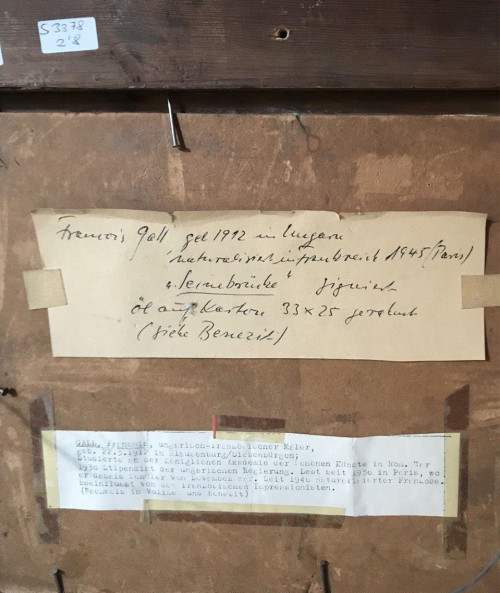 S 3378
2'8
Francois Gall geb 1912 in Ungarn
naturalisiert in Frankreich 1945 (Paris)
"Seinebrücke" signiert
öl auf Karton 33 x 25 gerahmt
(siehe Benezit)
GALL, Francois, ungarisch-französischer Maler,
geb. 22.3.1912 in Klausenburg/Siebenbürgen;
Studierte an der Königlichen Akademie der Schönen Künste in Rom. War
1930 Stipendiat der ungarischen Regierung. Lebt seit 1936 in Paris, wo
er Schüler von Devambez war. Seit 1945 naturalisierter Franzose.
Beeinflusst von den französischen Impressionisten.
(Vermerkt in Vollmer und Benezit)